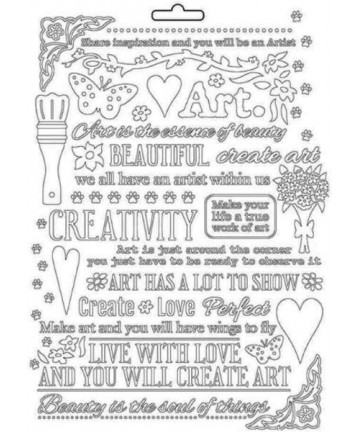 Share inspiration and you will be an Artist
Art.
Art is the essence of beauty
BEAUTIFUL create art
we all have an artist within us
CREATIVITY
Make your
life a true
work of art
Art is just around the corner
you just have to be ready to observe it
ART HAS A LOT TO SHOW
Create Love Perfect
Make art and you will have wings to fly
LIVE WITH LOVE
AND YOU WILL CREATE ART
Beauty is the soul of things